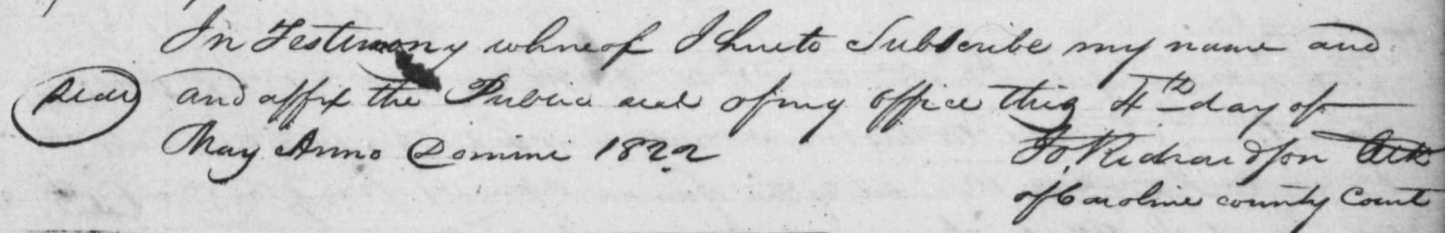 In Testimony whereof I hereto Subscribe my name and
Seal and affix the Public seal of my office this 4th day of
May Anno Domini 1822 Jo Richardson Clk
of Caroline county Court